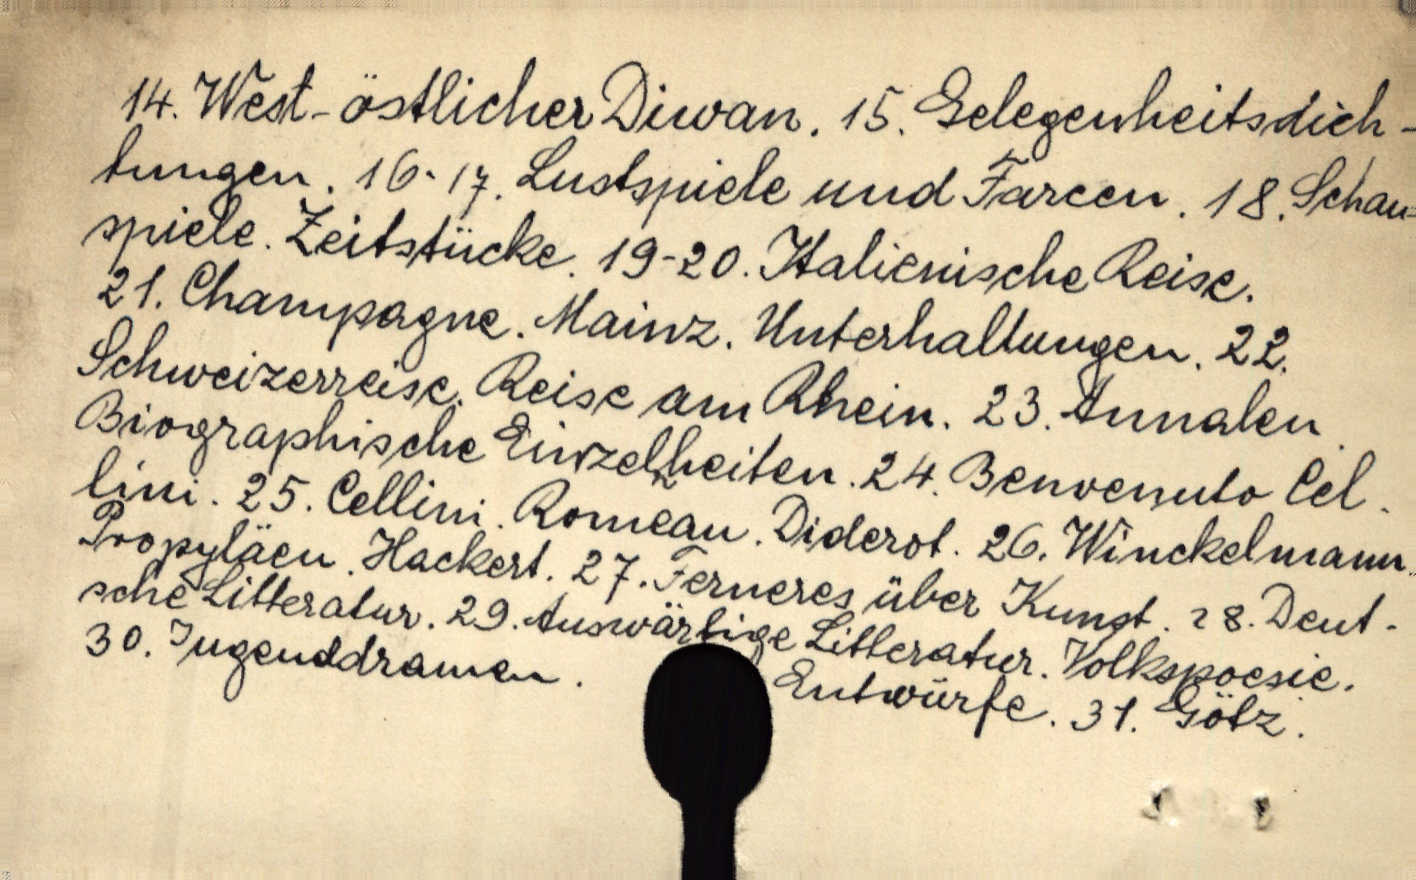 14. West-östlicher Diwan. 15. Gelegenheitsdich-
tungen. 16-17. Lustspiele und Farcen. 18. Schau=
spiele. Zeitstücke. 19-20. Italienische Reise.
21. Champagne. Mainz. Unterhaltungen. 22.
Schweizerreise. Reise am Rhein. 23. Annalen.
Biographische Einzelheiten. 24. Benvenuto Cel.
lini. 25. Cellini. Romeau. Diderot. 26. Winckelmann.
Propyläen. Hackert. 27. Ferneres über Kunst. 28. Deut-
sche Litteratur. 29. Auswärtige Litteratur. Volkspoesie.
30. Jugenddramen. Entwürfe. 31. Götz.